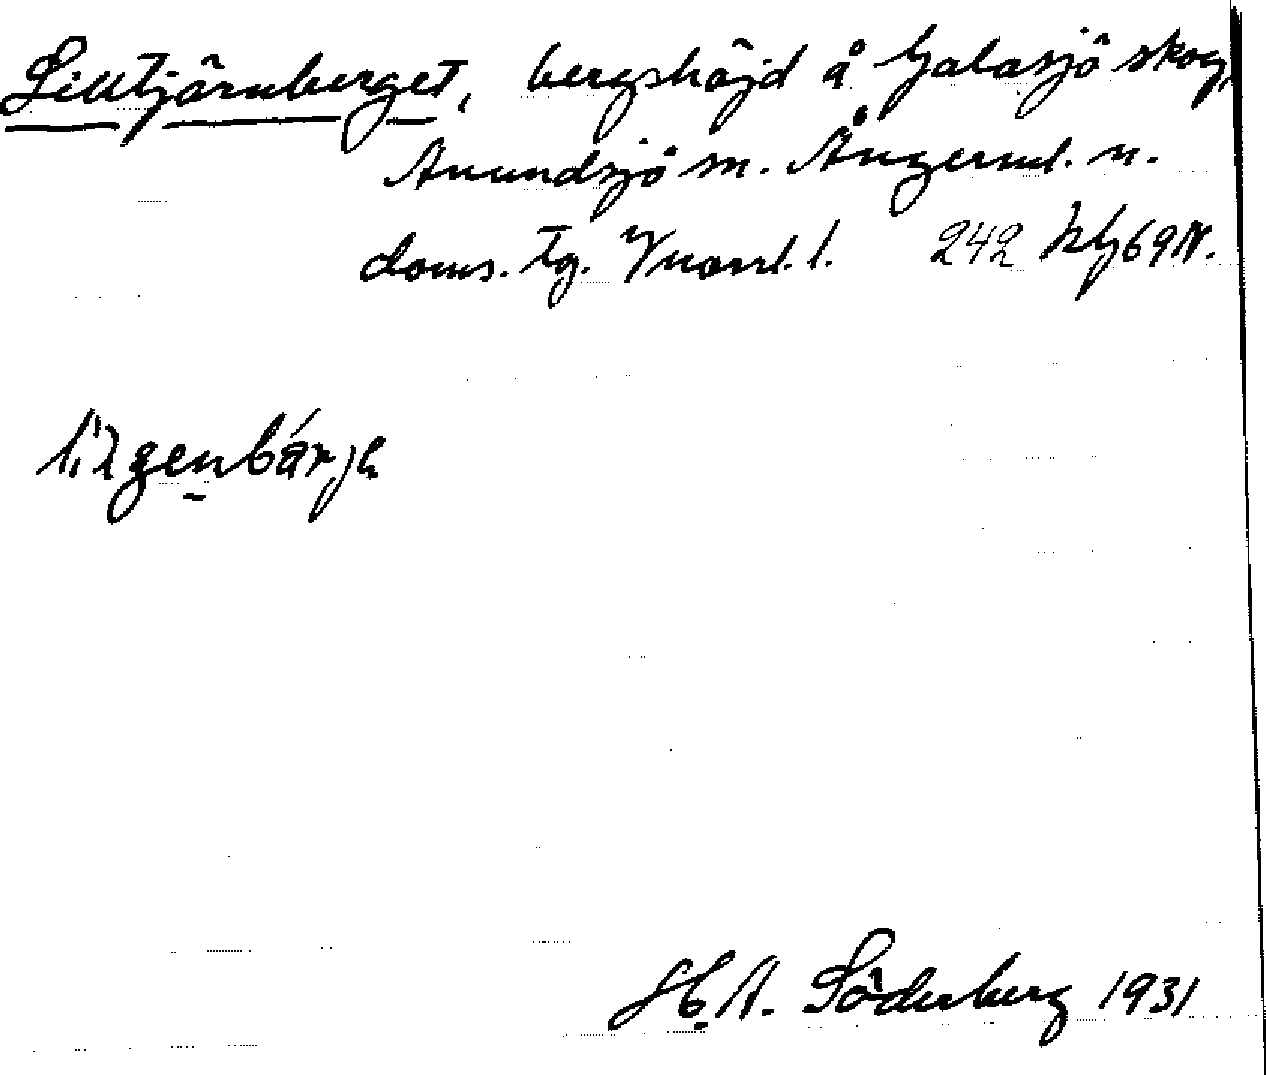 Lilltjärnberget, bergshöjd å Galasjö skog,
Anundsjö sn. Ångerml. n.
doms. tg. Vnorrl. l. 242
H. A. Söderberg 1931